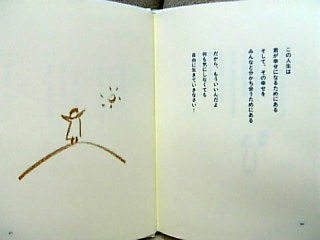 この人生は
君が幸せになるためにある
そして、その幸せを
みんなと分かち合うためにある
だから、もういいんだよ
何も気にしなくても
自由に生きていきなさい！